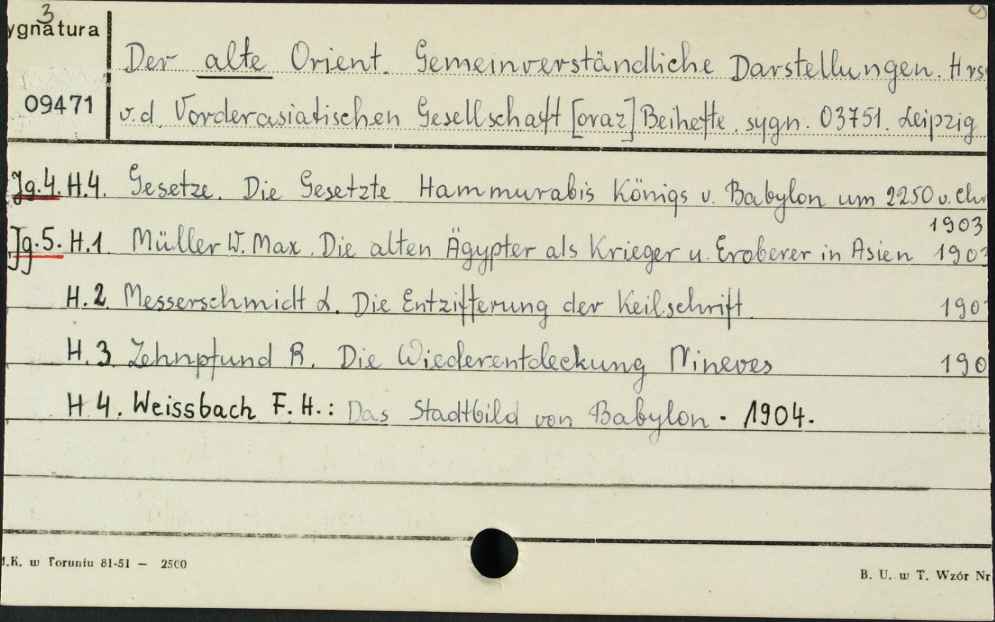 3
ygnatura
09471
Der alte Orient. Gemeinverständliche Darstellungen. Hrs
v.d. Vorderasiatischen Gesellschaft [oraz] Beihefte. sygn. 03751. Leipzig
Jg.4. H.4. Gesetze. Die Gesetzte Hammurabis Königs v. Babylon um 2250 v. Chr
1903
Jg.5. H.1 Müller W. Max. Die alten Ägypter als Krieger u. Eroberer in Asien 1903
H.2 Messerschmidt L. Die Entzifferung der Keilschrift 190
H.3 Zehnpfund R. Die Wiederentdeckung Nineves 190
H 4. Weissbach F. H.: Das Stadtbild von Babylon - 1904.
.K. w Toruniu 81-51 — 2500
B. U. w T. Wzór Nr